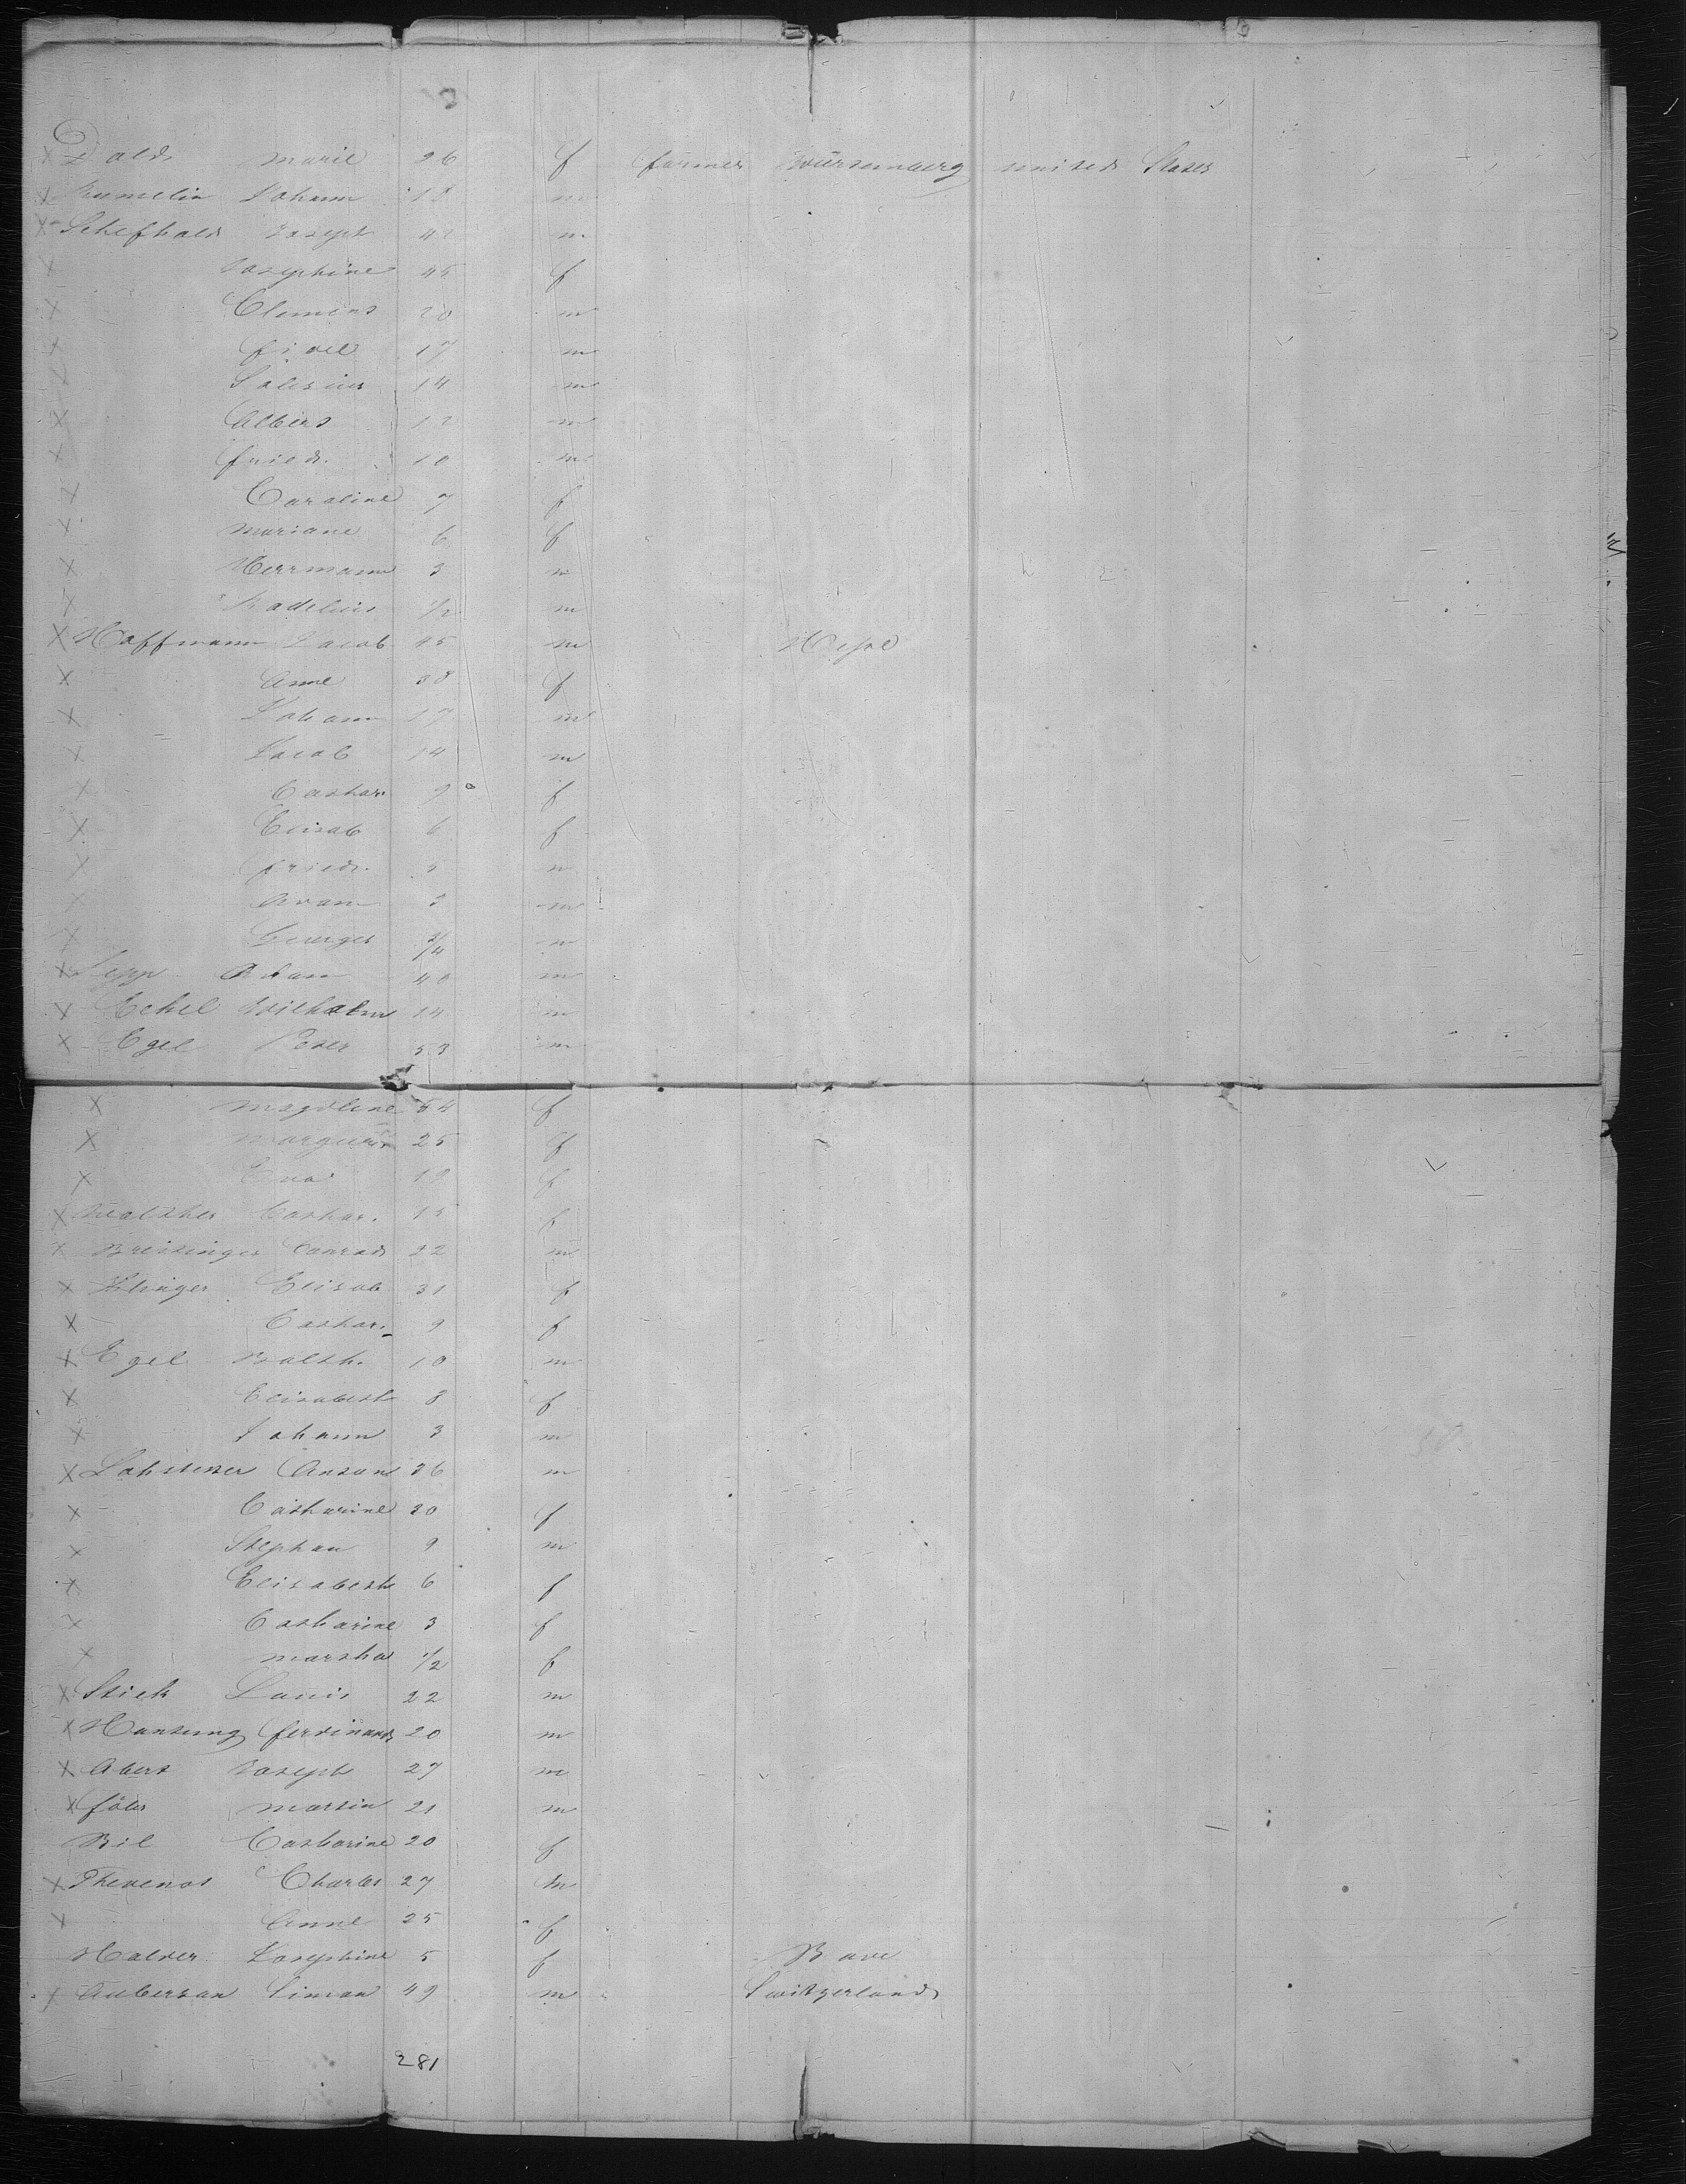 Dold Marie 26 f farmer Würtemberg united States
x Rumelin Johann 18 m
x Schefhold Joseph 42 m
x Josephine 45 f
x Clemens 20 m
x fidel 17 m
x 14 m
x Albert 12 m
x friedr. 10 m
x Caroline 7 f
x Mariane 6 f
x Herrmann 3 m
x 1/2 m
x Hoffmann Jacob 45 m Hesse
x Anne 38 f
x Johann 17 m
x Jacob 14 m
x Cathar. 9 f
x Elisab 6 f
x friedr. 5 m
x Adam 3 m
x Georges 3/4 m
x Adam 40 m
x Eckel Wilhelm 14 m
x Egel Peter 53 m
x Magdlene 54 f
x 25 f
x Eva 19 f
x Cathar. 15 f
x Breitinger Conrad 22 m
x Klinger Elisab 31 f
x Cathar. 9 f
x Egel Balth. 10 m
x Elisabeth 8 f
x Johann 3 m
x Anton 36 m
x Catharine 30 f
x Stephan 9 m
x Elisabeth 6 f
x Catharine 3 f
x Martha 1/2 f
x Stich Louis 22 m
x Hantung ferdinand 20 m
x Abert Joseph 27 m
x Martin 21 m
Bil Catharine 20 f
x Thevenot Charles 27 m
x Anne 25 f
Halder Josephine 5 f Bade
x Auberson Simon 49 m Switzerland
281